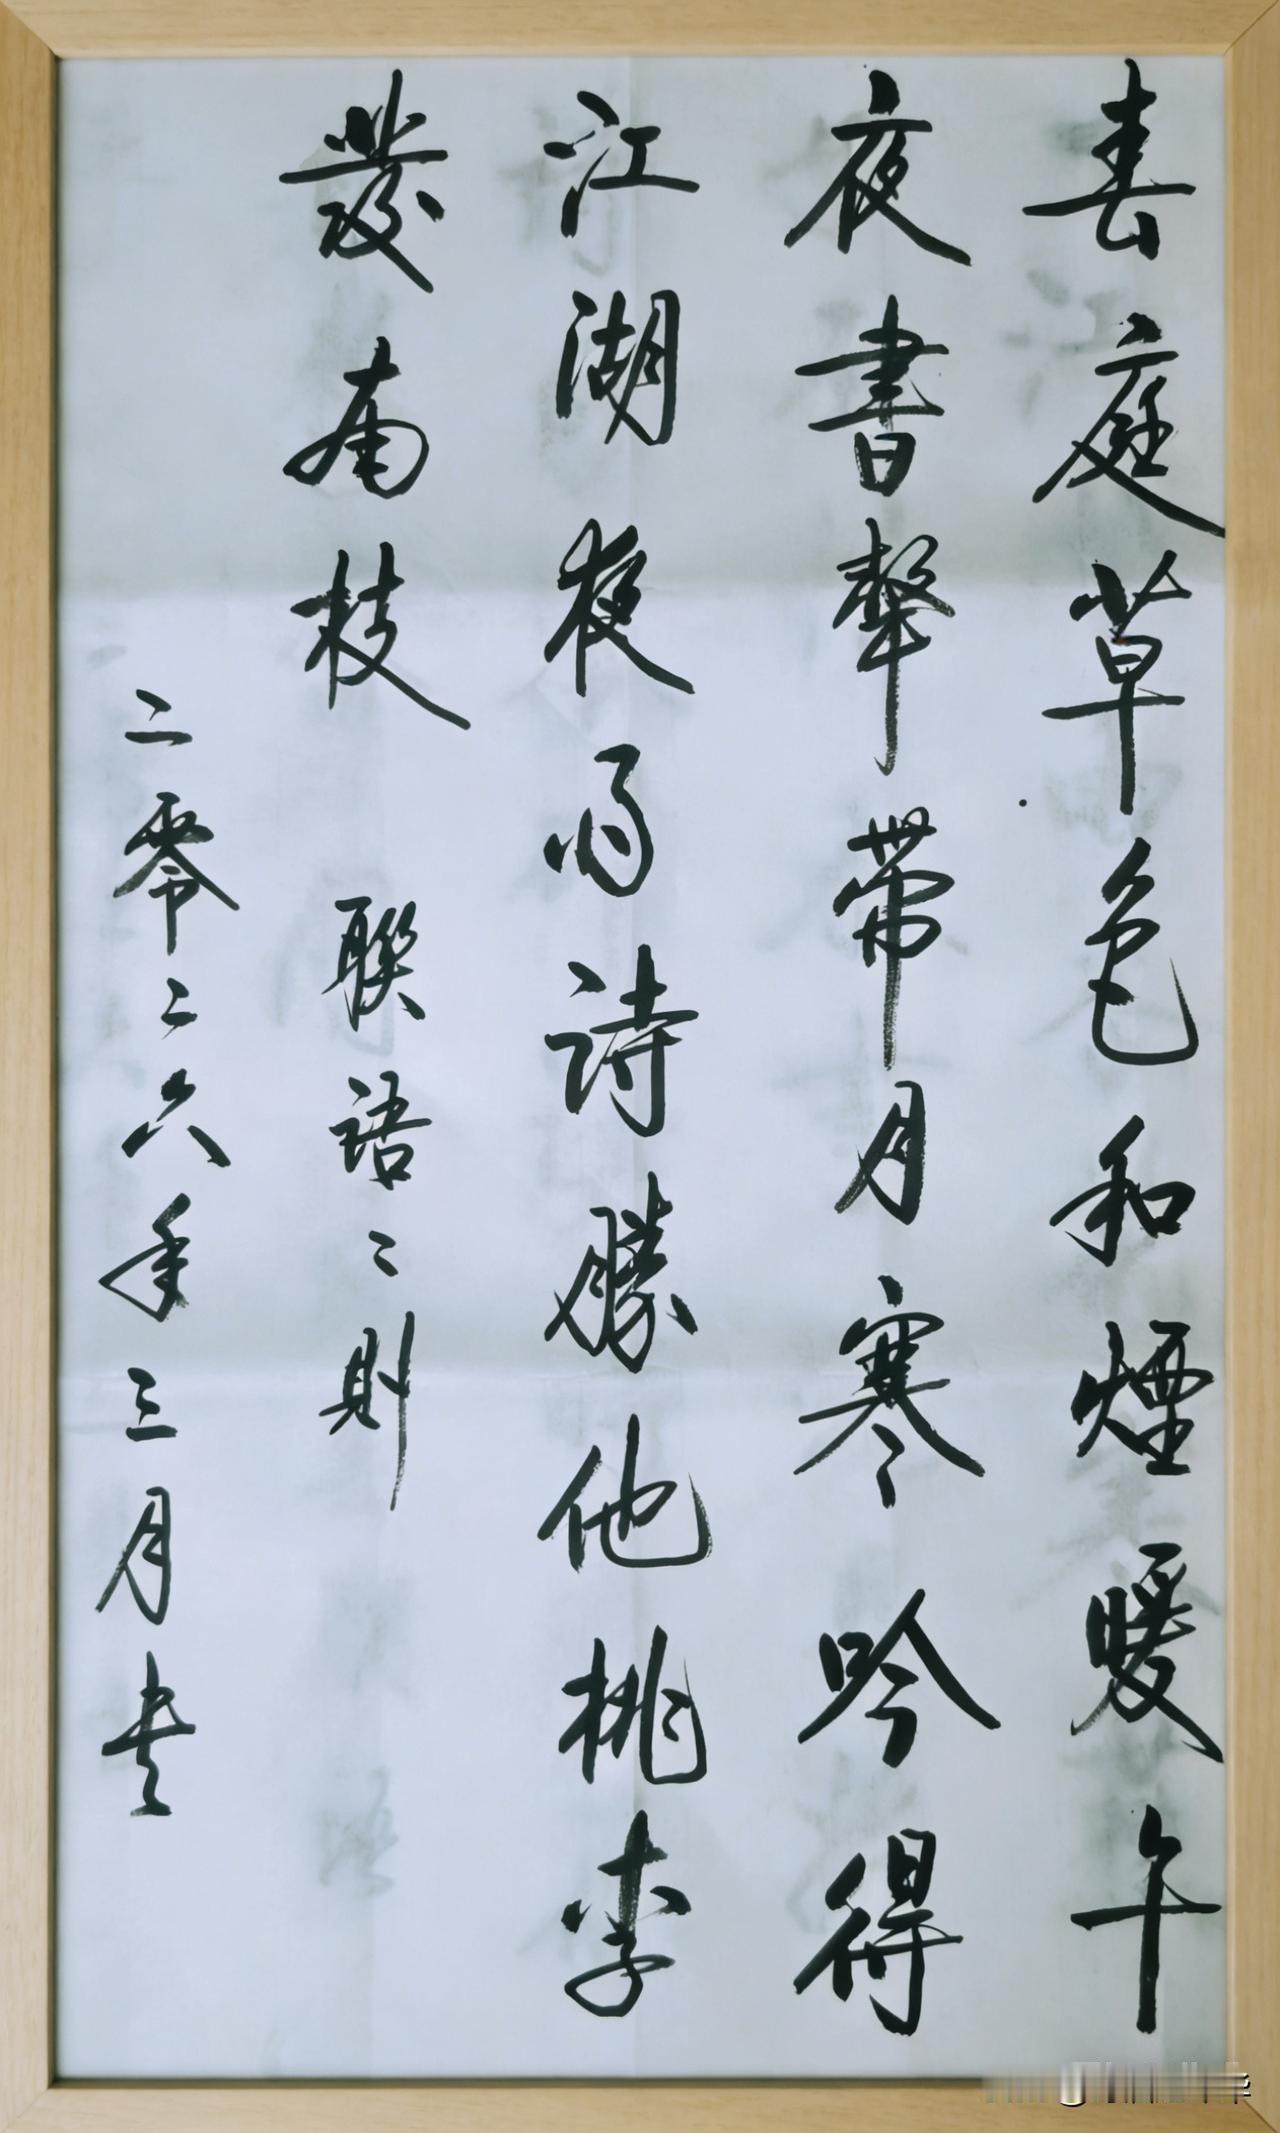 春庭草色和煙暖午
夜書聲帶月寒吟得
江湖夜雨詩勝他桃李
發南枝 聯語二則
二零二六年三月